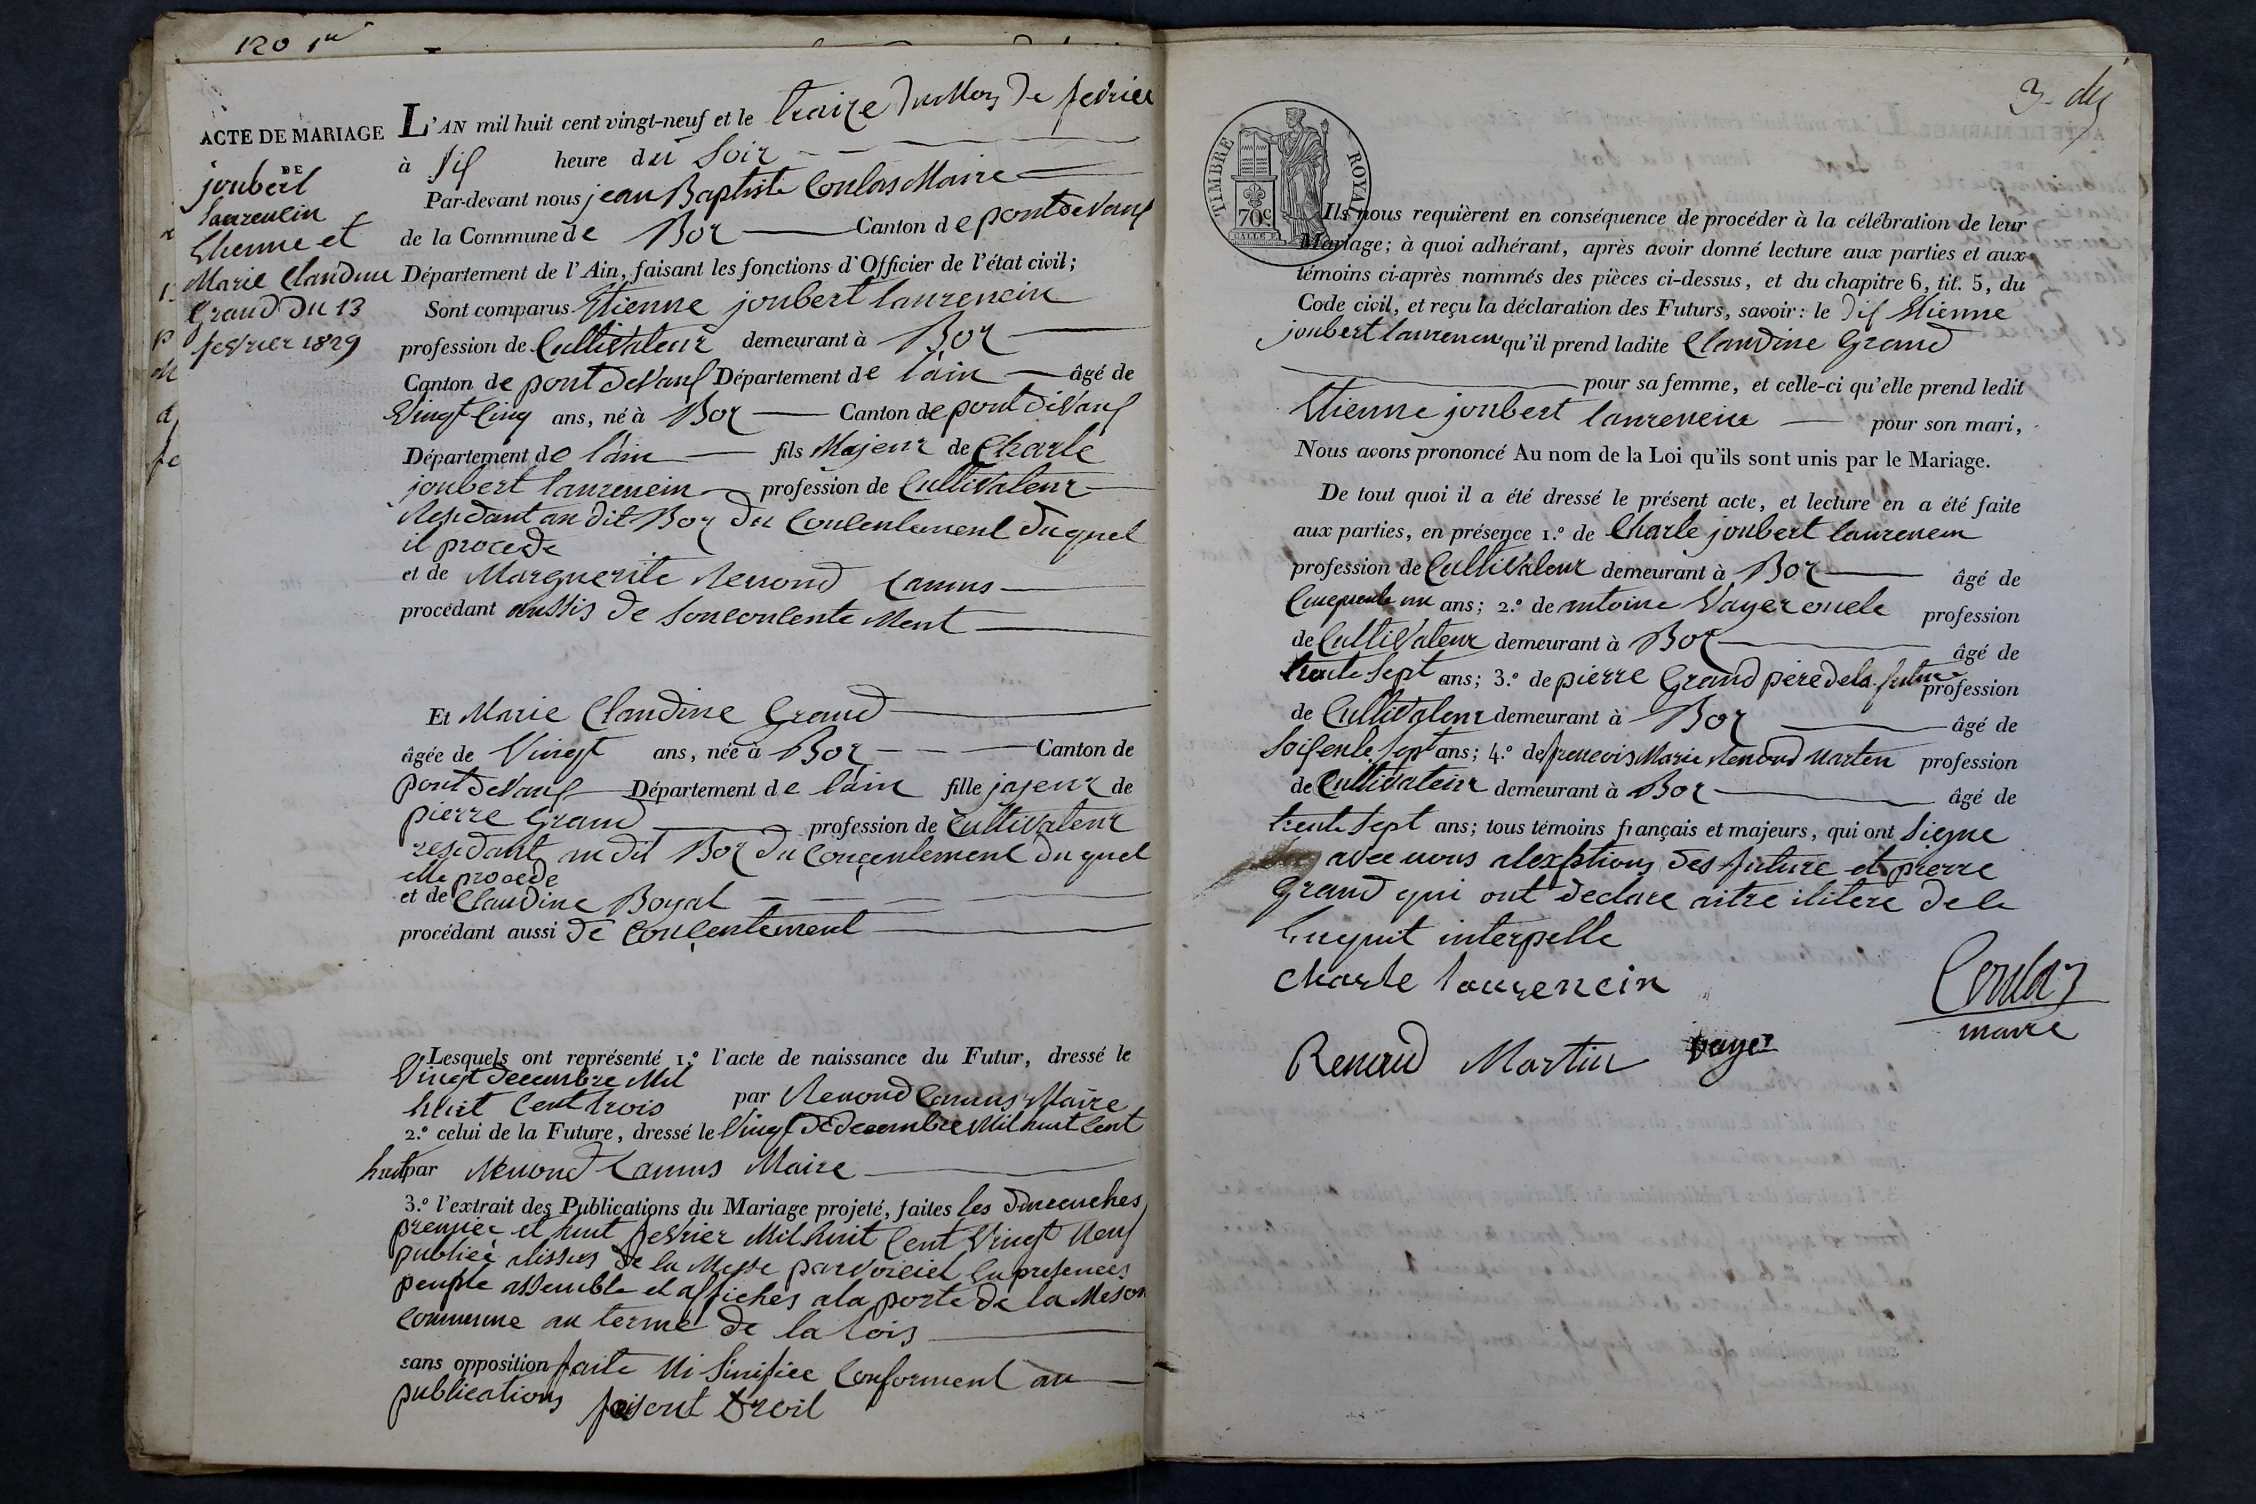 120 1er
ACTE DE MARIAGE
DE
joubert
laurencin
Etienne et
Marie Claudine
Grand Du 13
fevrier 1829
L'AN mil huit cent vingt-neuf et le traize du Mois De fevrier
à sis heure du Soir
Par-devant nous jean Baptiste Coulas Maire
de la Commune de Boz Canton de pont de Vaux
Département de l'Ain, faisant les fonctions d'Officier de l'état civil;
Sont comparus Etienne joubert laurencin
profession de Cultivateur demeurant à Boz
Canton de pont de Vaux Département de l'ain âgé de
Vingt Cinq ans, né à Boz Canton de pont de Vaux
Département de l'ain fils Majeur de Charle
joubert laurencin profession de Cultivateur
Residant au dit Boz du Consentement duquel
il procede
et de Marguerite Renoud Camus
procédant aussis de Son consente Ment
Et Marie Claudine Grand
âgée de Vingt ans, née à Boz Canton de
pont de Vaux Département de l'ain fille jajeur de
pierre Grand profession de Cultivateur
residant au dit Boz du Conçentement du quel
elle procede
et de Claudine Boyat
procédant aussi de Conçentement
Lesquels ont représenté 1.º l'acte de naissance du Futur, dressé le
Vingt decembre Mil
huit Cent trois par Renoud Camus Maire
2.º celui de la Future, dressé le Vingt De decembre Mil huit Cent
huit par Renoud Camus Maire
3.º l'extrait des Publications du Mariage projeté, faites les dimenches
premier et huit fevrier Mil huit Cent Vingt Neuf
publieé alissus de la Messe parvoiciel en presences
peuple assemble et affiches a la porte de la Meson
commune au terme de la lois
sans opposition faite Ni Sinifiee Conforment au
publications faisent Droit
3. dis
TIMBRE ROYAL
70c
Ils nous requièrent en conséquence de procéder à la célébration de leur
Mariage; à quoi adhérant, après avoir donné lecture aux parties et aux
témoins ci-après nommés des pièces ci-dessus, et du chapitre 6, tit. 5, du
Code civil, et reçu la déclaration des Futurs, savoir: le dit Etienne
joubert laurencin qu'il prend ladite Claudine Grand
pour sa femme, et celle-ci qu'elle prend ledit
Etienne joubert laurencin pour son mari,
Nous avons prononcé Au nom de la Loi qu'ils sont unis par le Mariage.
De tout quoi il a été dressé le présent acte, et lecture en a été faite
aux parties, en présence 1.º de Charle joubert laurencin
profession de Cultivateur demeurant à Boz âgé de
Cinquante un ans; 2.º de antoine Vayer oncle profession
de Cultivateur demeurant à Boz âgé de
trante Sept ans; 3.º de pierre Grand père de la future profession
de Cultivateur demeurant à Boz âgé de
Soisente Sept ans; 4.º de frencois Marie Renoud Marten profession
de Cultivateur demeurant à Boz âgé de
trente Sept ans; tous témoins français et majeurs, qui ont Signe
avec nous alexsptions des future et pierre
Grand qui ont declare aitre ilitere de le
Enquit interpelle
Charle laurencin
Coulas
maire
Renoud Martin vayer